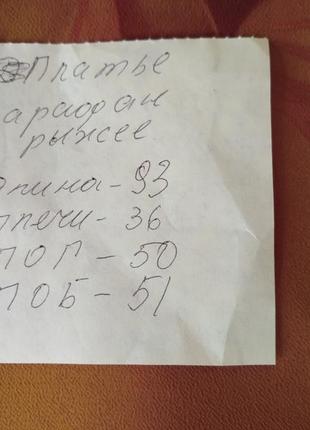 Платье
арафан
рыжее
лина - 93
плечи - 36
ПОГ - 50
ПОБ - 51